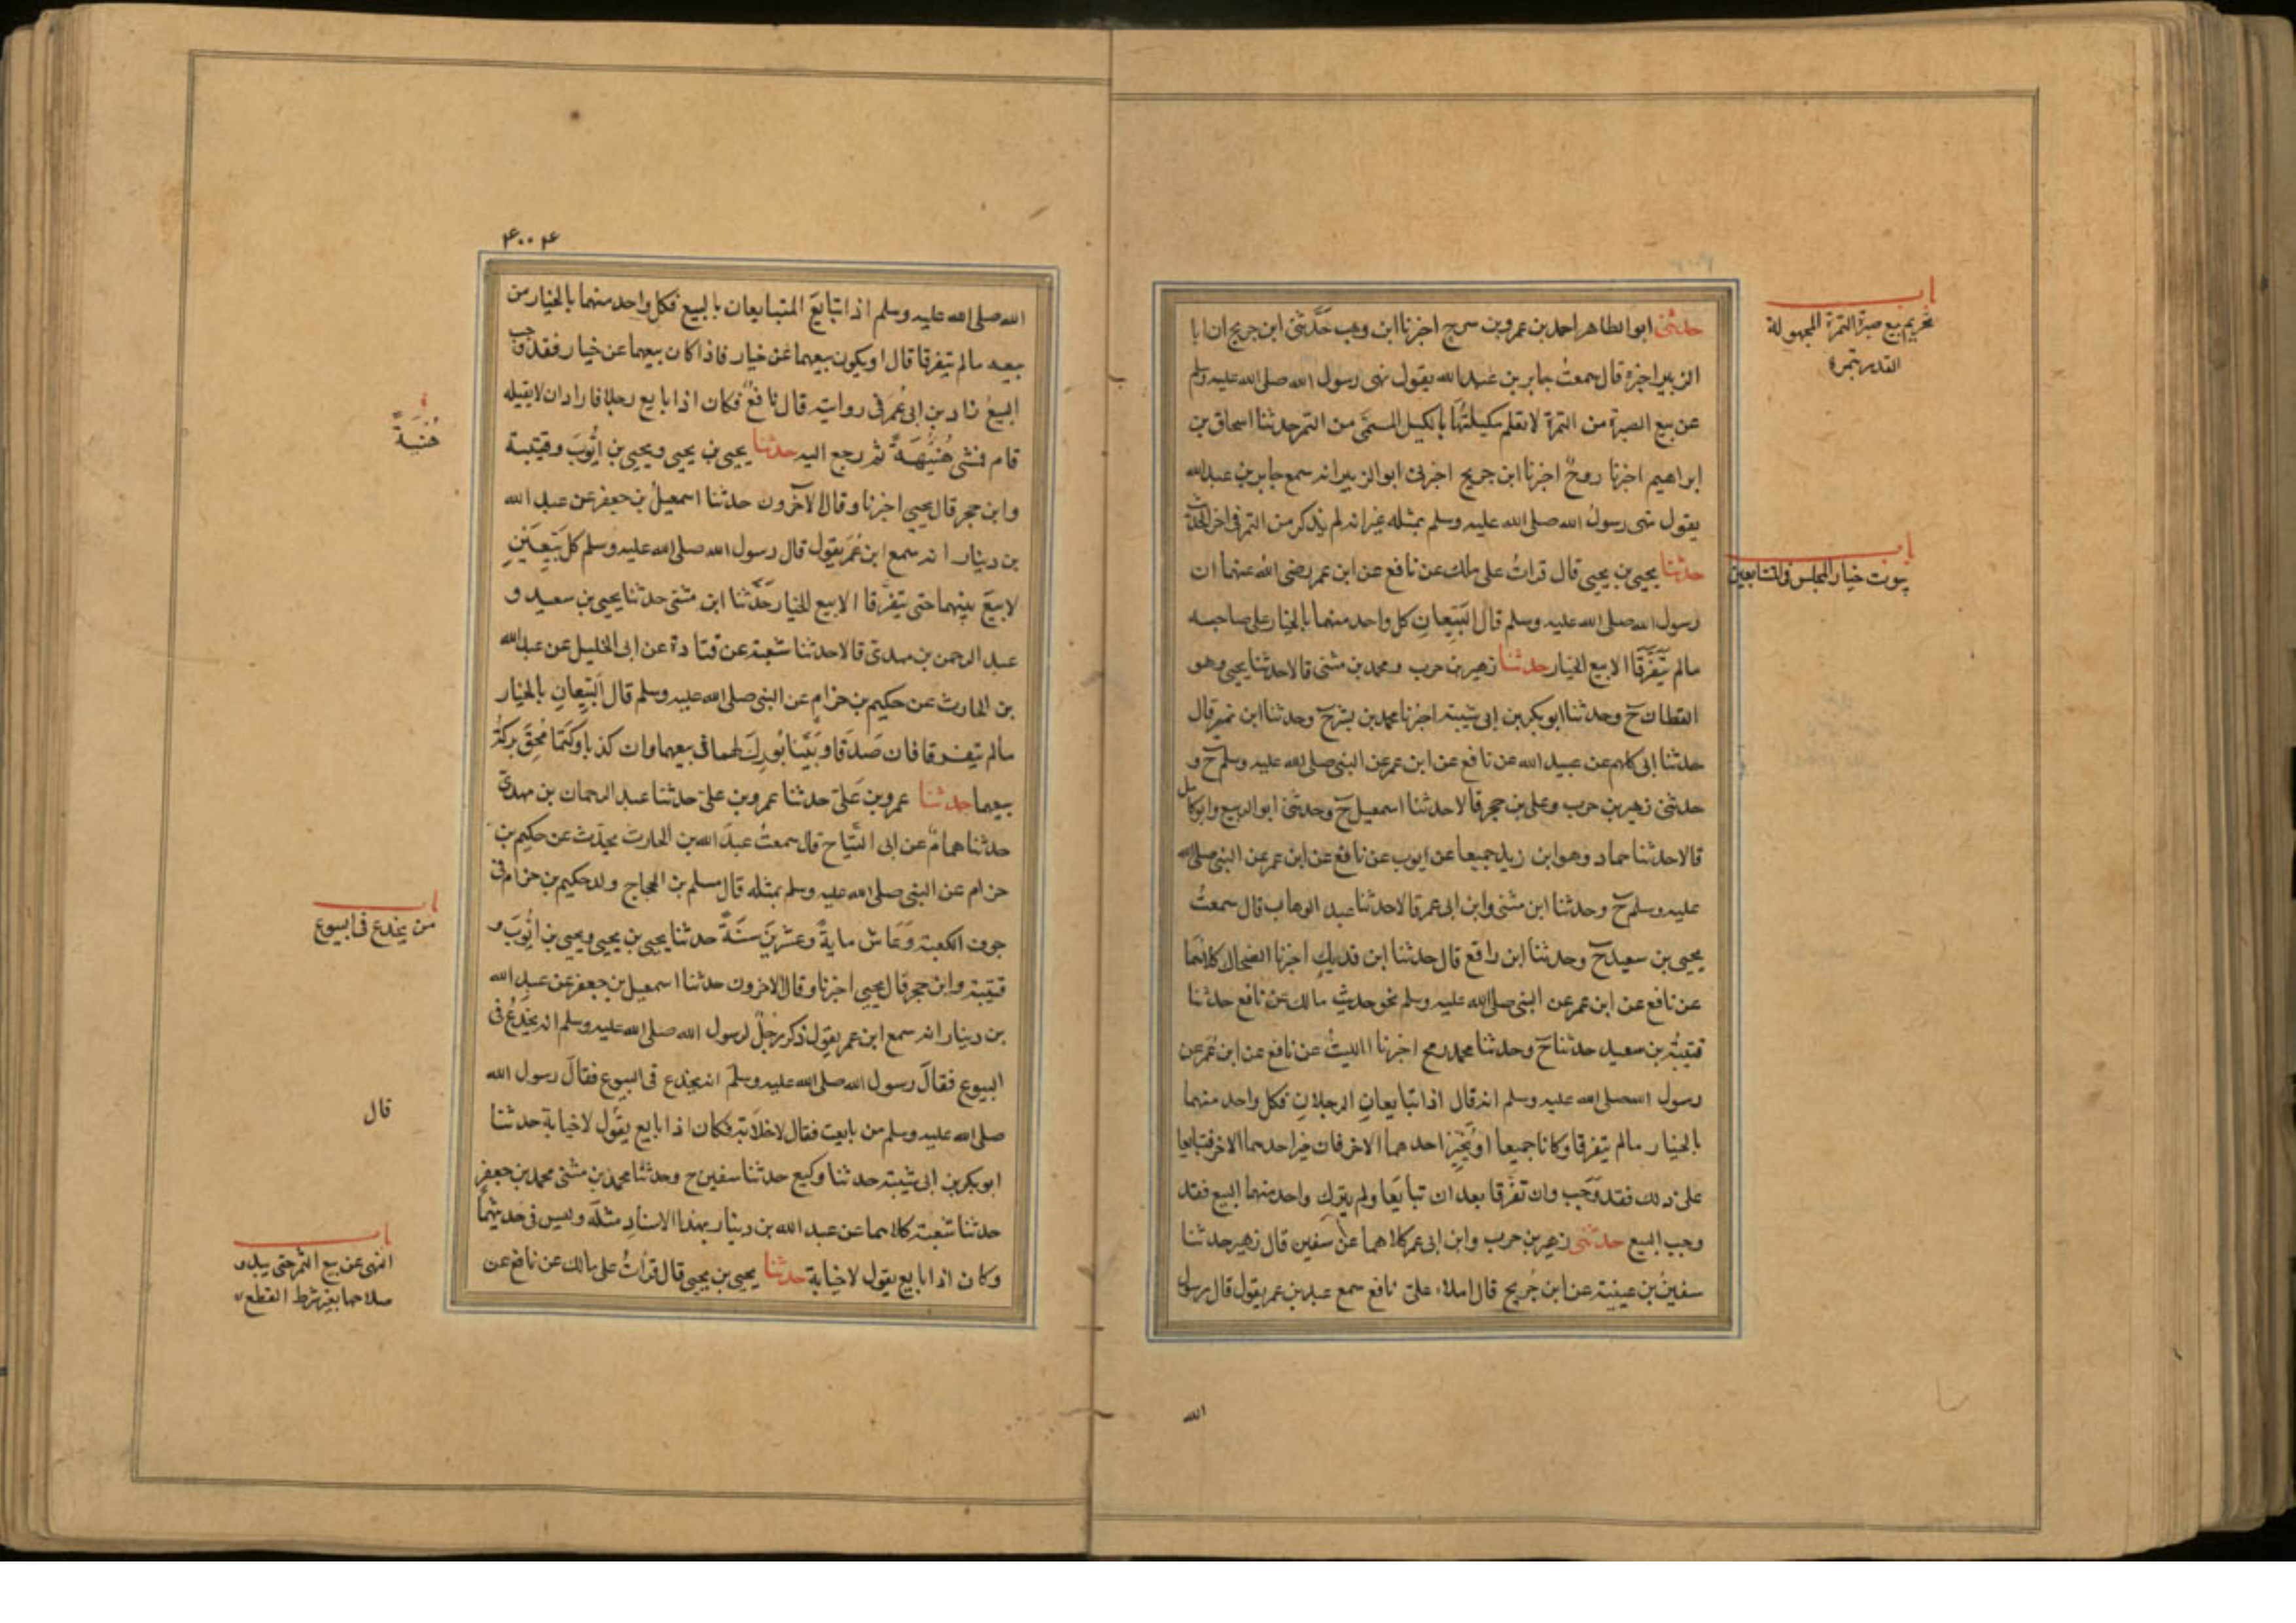 باب
تحريم بيع صبرة التمرة المجهولة
القدر بتمرة
حدثنى ابو الطاهر احمد بن عمرو بن سرح اخبرنا ابن وهب حَدَّثنى ابن جريج ان ابا
الزبير اخبره قال سمعتُ جابر بن عبد الله يقول نهى رسول الله صلى الله عليه وسلم
عن بيع الصبرة من التمرة لا تعلم مكيلتُهَا بالكيل المسمَّى من التمر حدثنا اسحاق بن
ابراهيم اخبرنا روحٌ اخبرنا ابن جريج اخبرنى ابو الزبير انه سمع جابر بن عبد الله
يقول نهى رسولُ الله صلى الله عليه وسلم بمثله غير انه لم يذكر من التمر فى اخر الحديث
باب
ثبوت خيار المجلس فى المتبايعين
حدثنا يحيى بن يحيى قال قراتُ على ملك عن نافع عن ابن عمر رضى الله عنهما ان
رسول الله صلى الله عليه وسلم قال البَيّعِانِ كل واحد منهما بالخيار على صاحبه
مالم يَتَفَرَّقَا الا بيع الخيار حدثنا زهير بن حرب ومحمد بن مثنى قالا حدثنا يحيى وهو
القطان ح وحدثنا ابو بكر بن ابى شيبة اخبرنا محمد بن بشر ح وحدثنا ابن نمير قال
حدثنا ابى كلهم عن عبيد الله عن نافع عن ابن عمر عن النبى صلى الله عليه وسلم ح و
حدثنى زهير بن حرب وعلى بن حجر قالا حدثنا اسمعيل ح وحدثنى ابو الربيع وابو كامل
قالا حدثنا حماد وهو ابن زيد جميعا عن ايوب عن نافع عن ابن عمر عن النبى صلى الله
عليه وسلم ح وحدثنا ابن مثنى وابن ابى عمر قالا حدثنا عبد الوهاب قال سمعتُ
يحيى بن سعيد ح وحدثنا ابن رافع قال حدثنا ابن فديك اخبرنا الضحاك كلاهُمَا
عن نافع عن ابن عمر عن النبى صلى الله عليه وسلم نحو حديث مالك عن نافع حدثنا
قتيبةُ بن سعيد حدثنا ح وحدثنا محمد رمح اخبرنا الليثُ عن نافع عن ابن عُمَر عن
رسول الله صلى الله عليه وسلم انه قال اذا تبايعانِ الرجلانِ فكل واحد منهما
بالخيار مالم يتفرقا وكانا جميعا او يُخَيِّر احدهما الاخر فان خير احدهما الاخر فتبايعا
على ذلك فقد وَجَب وان تفرَّقا بعد ان تبايَعَا ولم يترك واحد منهما البيع فقد
وجب البيع حدثنى زهير بن حرب وابن ابى عمر كلاهما عن سفين قال زهير حدثنا
سفينُ بن عيينة عن ابن جُريج قال املاء على نافع سمع عبد بن عمر يقول قال رسول
الله
۴۰۰۴
الله صلى الله عليه وسلم اذا تبايَعَ المتبايعان بالبيع فكل واحد منهما بالخيار من
بيعه مالم يتفرقا قال او يكون بيعهما عن خيار فاذا كان بيعهما عن خيار فقد وجب
البيعُ زاد بن ابى عُمَر فى روايته قال نافعٌ فكان اذا بايع رجلا فاراد ان لا يقيله
قام فمشى هُنَيْهَةً ثم رجع اليه حدثنا يحيى بن يحيى ويحيى بن ايُّوبَ وقتيبة
هُنَيَةً
وابن حجر قال يحيى اخبرنا وقال الآخرون حدثنا اسمعيلُ بن جعفر عن عبد الله
بن دينار انه سمع ابن عُمَر يقول قال رسول الله صلى الله عليه وسلم كل بَيّعَينِ
لا بيعَ بينهما حتى يتفرَّقا الا بيع الخيار حَدَّثنا ابن مثنى حدثنا يحيى بن سعيد و
عبد الرحمن بن مهدى قالا حدثنا شعبة عن قتادة عن ابى الخليل عن عبد الله
بن الحارث عن حكيم بن حزامٍ عن النبى صلى الله عليه وسلم قال البَيّعانِ بالخيار
مالم يتفرقا فان صَدَقَا وبَيَّنَا بُورِكَ لهما فى بيعهما وان كذبا وكَتَمَا مُحِقَ بركةُ
بيعهما حدثنا عمرو بن عَلىّ حدثنا عمرو بن علىّ حدثنا عبد الرحمان بن مهدىّ
حدثنا همامٌ عن ابى التَّيَّاح قال سمعتُ عبدَ الله بن الحارث يحدّث عن حكيم بن
حزام عن النبى صلى الله عليه وسلم بمثله قال مسلم بن الحجاج ولد حكيم بن حزام فى
جوف الكعبة وَعَاش مايةً وعشرينَ سَنَةً حدثنا يحيى بن يحيى ويحيى بن ايُّوبَ و
باب
من يخدع فى البيوع
قتيبة وابن حجر قال يحيى اخبرنا وقال الاخرون حدثنا اسمعيل بن جعفر عن عبدِ الله
بن دينار انه سمع ابن عمر يقول ذكر رجلٌ لرسول الله صلى الله عليه وسلم انه يخدعُ فى
البيوع فقالَ رسول الله صلى الله عليه وسلم انه يخدع فى البيوع فقالَ رسول الله
صلى الله عليه وسلم من بايعت فقال لا خلابَة فكان اذا بايع يقُول لا خيابة حدثنا
قال
ابو بكر بن ابى شيبة حدثنا وكيع حدثنا سفين ح وحدثنا محمد بن مثنى محمد بن جعفر
حدثنا شعبة كلاهما عن عبد الله بن دينار بهذا الاسنادِ مثلَه وليس فى حديثهِمَا
وكان اذا بايع يقول لا خيابة حدثنا يحيى بن يحيى قال قراتُ على مالك عن نافع عن
باب
النهى عن بيع الثمر حتى يبدو
صلاحها بغير شرط القطع